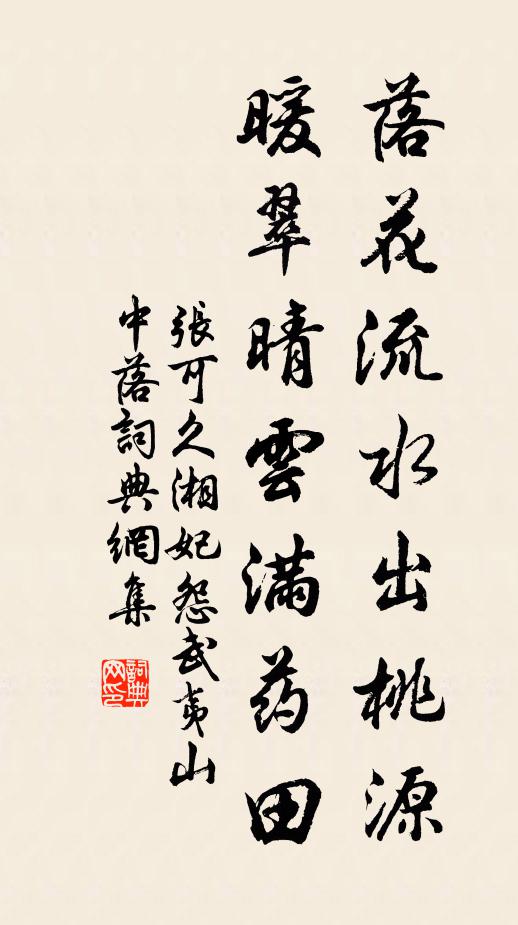 落花流水出桃源
暖翠晴雲满药田
張可久湘妃怨武夷山
中落詞典網集
詞典网印